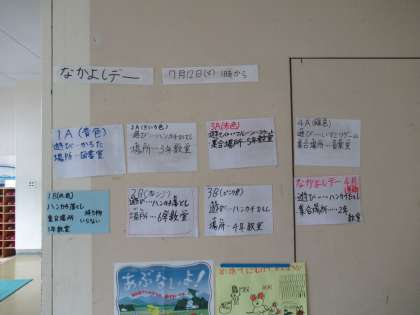 なかよしデー
12日
から
1A(青色)
遊び…かるた
場所…図書室
2A(きいろ色)
遊び…ハンカチおとし
場所…3年教室
3A(赤色)
遊び…フルーツバスケット
集合場所…5年教室
4A(緑色)
遊び…いすとりゲーム
集合場所…音楽室
1B(水色)
ハンカチ落とし
集合場所
持ち物
いらない
年教室
2B(オレンジ)
遊び…ハンカチ落とし
場所…6年教室
3B(ピンク色)
遊び…ハンカチおとし
場所…4年教室
なかよしデー
遊び…ハンカチおとし
集合場所…2年
教室
あぶないよ!